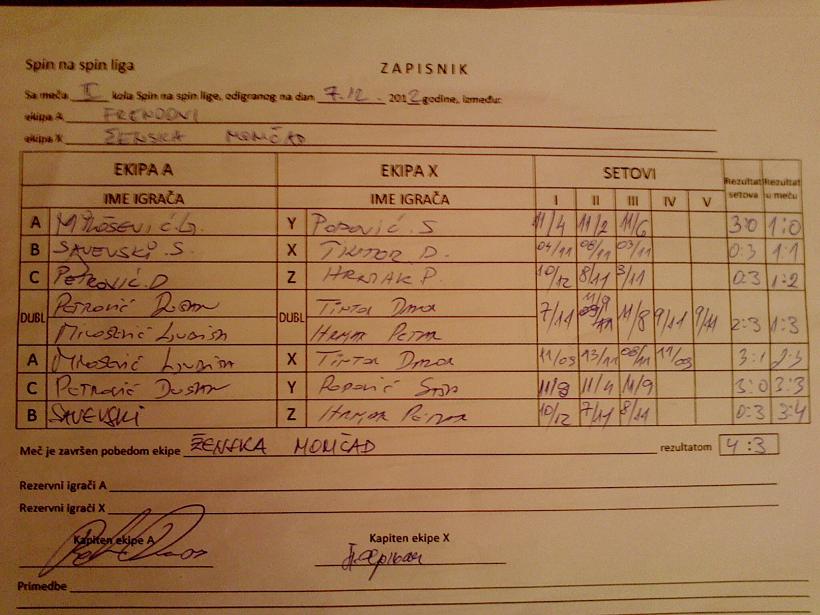 Spin na spin liga
ZAPISNIK
Sa meča II kola Spin na spin lige, odigranog na dan 7.12. 2012 godine, između:
ekipa A FRENDOVI
ekipa X ŽENSKA MOMČAD
EKIPA A EKIPA X SETOVI Rezultat setova Rezultat u meču
IME IGRAČA IME IGRAČA I II III IV V
A MILOŠEVIĆ LJ. Y POPOVIĆ. S 11/4 11/2 11/6 3:0 1:0
B SAVEVSKI .S. X D. 04/11 08/11 07/11 0:3 1:1
C PETROVIĆ. D Z P. 10/12 8/11 3/11 0:3 1:2
DUBL PETROVIĆ DUŠAN DUBL 7/11 11/8 9/11 9/11 2:3 1:3
MILOŠEVIĆ LJUBIŠA
A MILOŠEVIĆ LJUBIŠA X 11/09 13/11 08/11 11/09 3:1 2:3
C PETROVIĆ DUŠAN Y POPOVIĆ 11/8 11/4 11/9 3:0 3:3
B SAVEVSKI Z 10/12 7/11 8/11 0:3 3:4
Meč je završen pobedom ekipe ŽENSKA MOMČAD rezultatom 4:3
Rezervni igrači A
Rezervni igrači X
Kapiten ekipe A Kapiten ekipe X
Primedbe